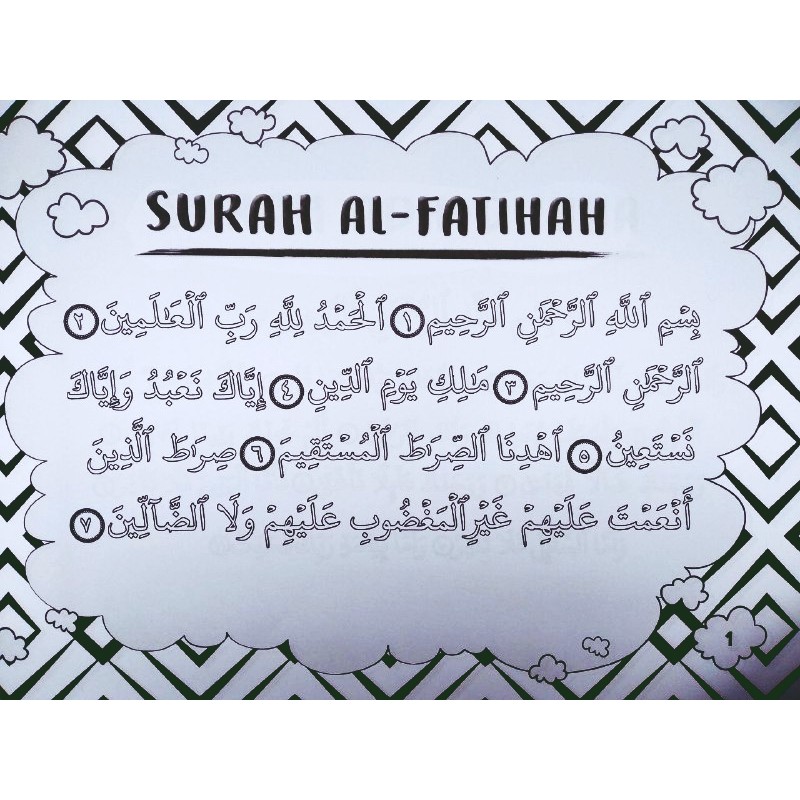 SURAH AL-FATIHAH
بِسْمِ ٱللَّهِ ٱلرَّحْمَٰنِ ٱلرَّحِيمِ ١ ٱلْحَمْدُ لِلَّهِ رَبِّ ٱلْعَٰلَمِينَ ٢
ٱلرَّحْمَٰنِ ٱلرَّحِيمِ ٣ مَٰلِكِ يَوْمِ ٱلدِّينِ ٤ إِيَّاكَ نَعْبُدُ وَإِيَّاكَ
نَسْتَعِينُ ٥ ٱهْدِنَا ٱلصِّرَٰطَ ٱلْمُسْتَقِيمَ ٦ صِرَٰطَ ٱلَّذِينَ
أَنْعَمْتَ عَلَيْهِمْ غَيْرِٱلْمَغْضُوبِ عَلَيْهِمْ وَلَا ٱلضَّآلِّينَ ٧
1